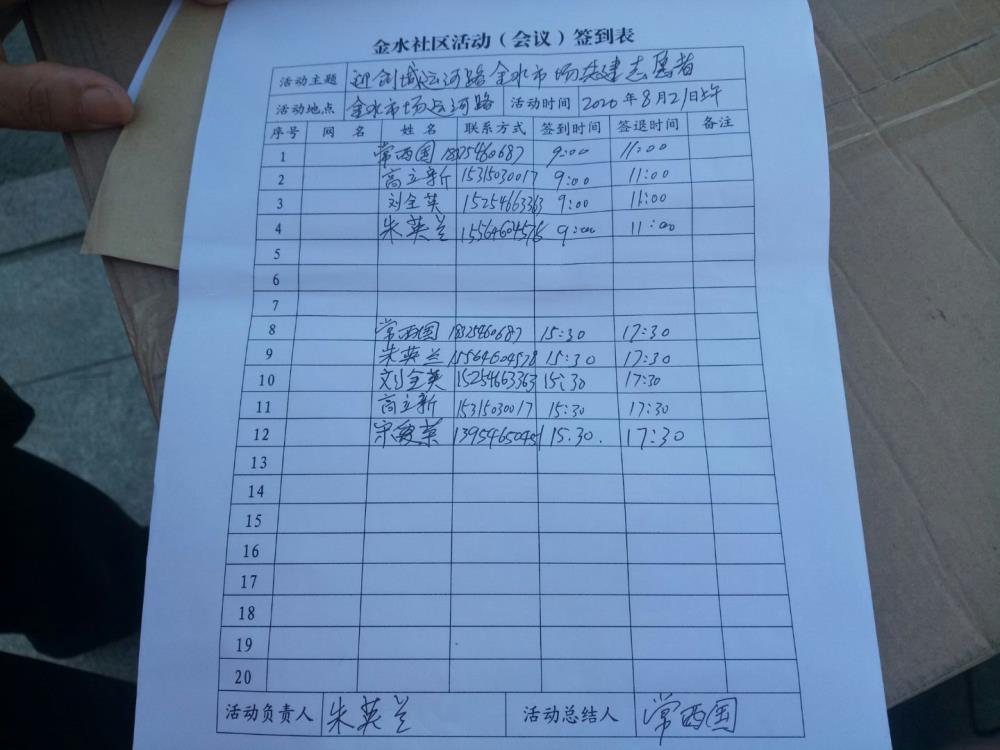 金水社区活动（会议）签到表
活动主题 迎创城运河路金水市场共建志愿者
活动地点 金水市场运河路 活动时间 2020年8月21日上午
序号 网 名 姓 名 联系方式 签到时间 签退时间 备注
1 常西国 18325460687 9:00 11:00
2 高立新 15315030017 9:00 11:00
3 刘全英 15254663363 9:00 11:00
4 朱英兰 15564604578 9:00 11:00
5
6
7
8 常西国 18325460687 15:30 17:30
9 朱英兰 15564604578 15:30 17:30
10 刘全英 15254663363 15:30 17:30
11 高立新 15315030017 15:30 17:30
12 宋 英 15.30. 17:30
13
14
15
16
17
18
19
20
活动负责人 朱英兰 活动总结人 常西国